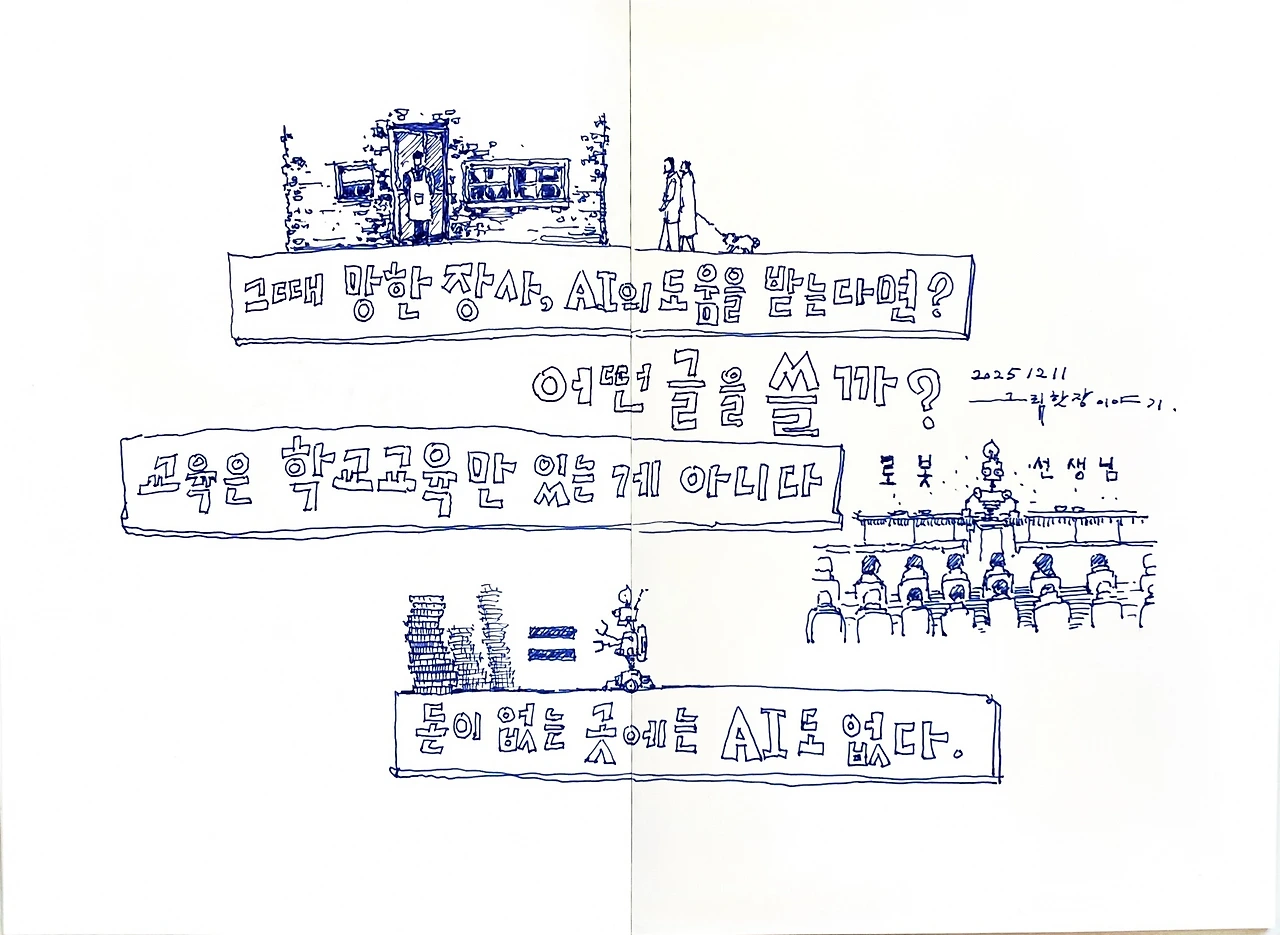 그때 망한 장사, AI의 도움을 받는다면?
어떤 글을 쓸까?
20251211
그림한장이야기.
교육은 학교교육만 있는 게 아니다
로봇 선생님
돈이 없는 곳에는 AI도 없다.